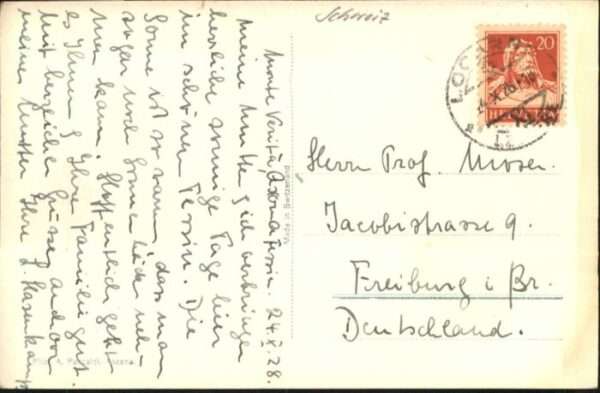 Schweiz
Monte Verità, Ascona Tessin. 24.X.28.
Meine Mutter & ich verbringen
herrliche sonnige Tage hier
im schönen Tessin. Die
Sonne ist so warm, dass man
sogar noch Sonnenbäder neh-
men kann. Hoffentlich geht
es Ihnen & Ihrer Familie gut.
Mit herzlichen Grüssen auch von
meiner Mutter Ihre L. Hasenkamp
Made in Switzerland
20
LOCARNO
X.28
Herrn Prof. Moser.
Jacobistrasse 9.
Freiburg i/Br.
Deutschland.